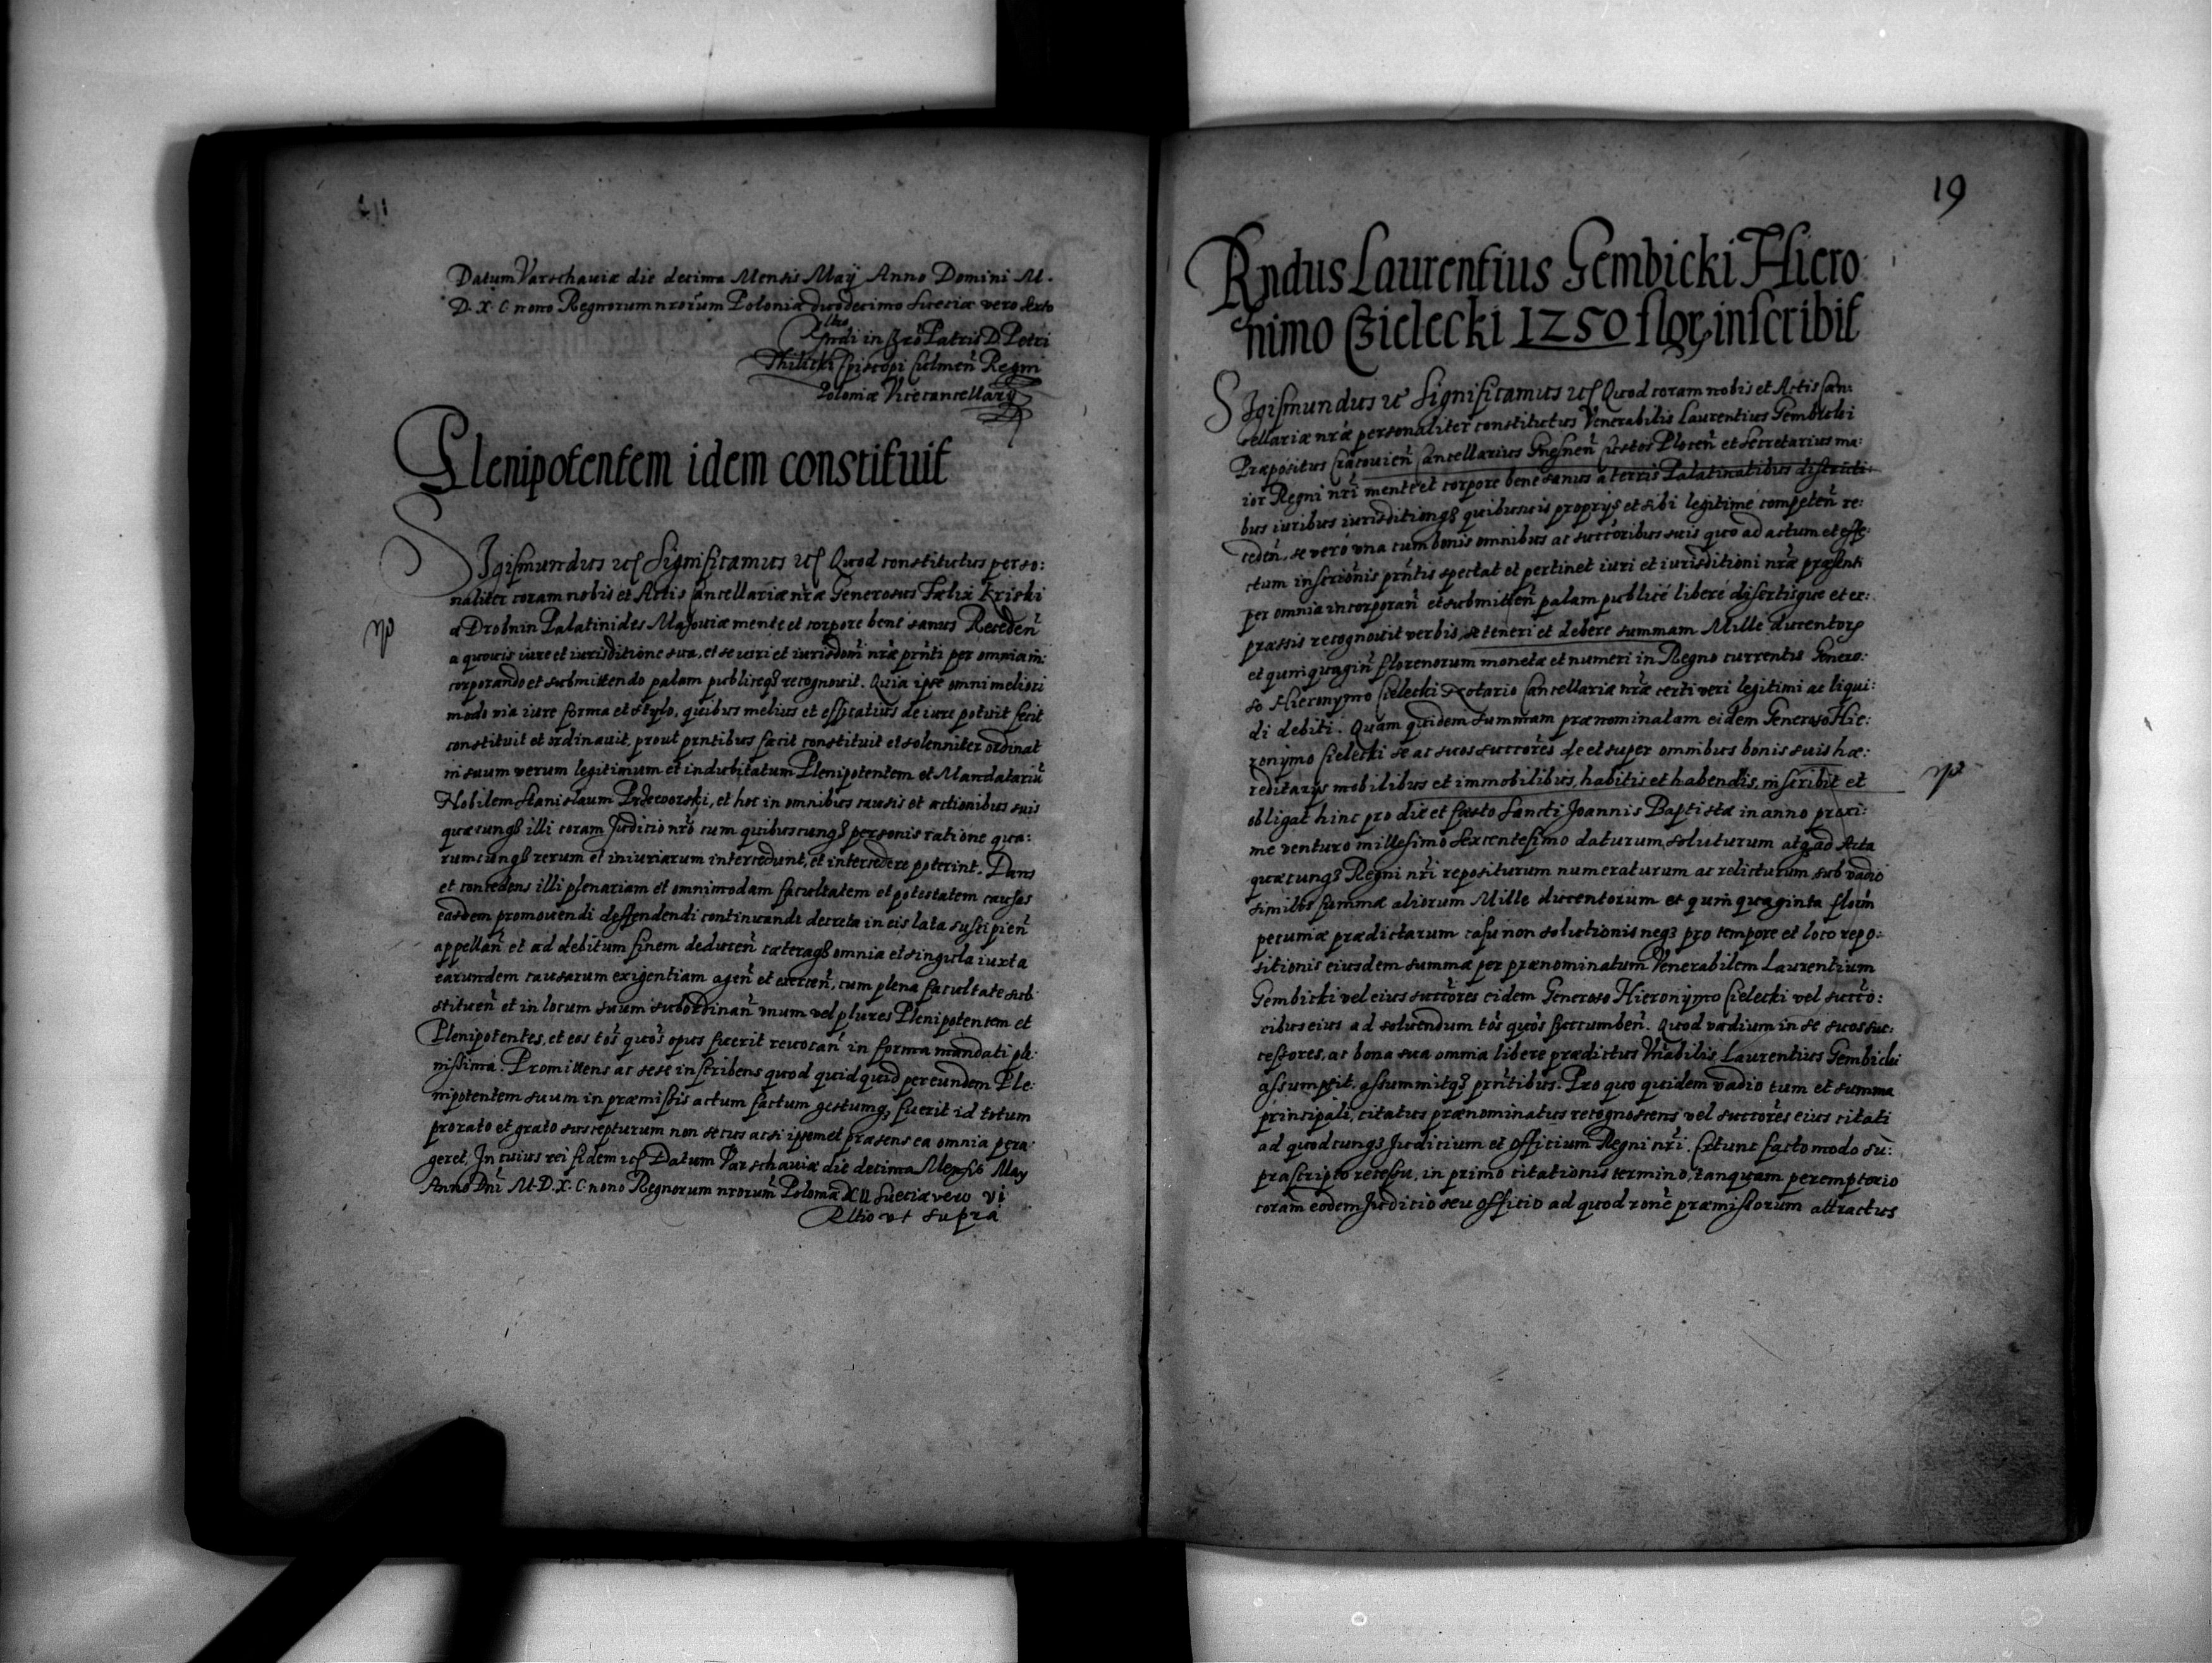 Datum Varschauiæ die decima Mensis Maÿ Anno Domini M.
D. X. C nono Regnorum nrorum Poloniæ duodecimo Sueciæ vero sexto
Rndi in Xro Patris D. Petri
Thilicki Episcopi Culmeñ Regni
Poloniæ Vicecancellarÿ
Plenipotentem idem constituit
Sigismundus etc Significamus etc Quod constitutus perso:
naliter coram nobis et Actis Cancellariæ nræ Generosus Fælix Kriski
a Drobnin Palatinides Masouiæ mente et corpore bene sanus Recedeñ
a quouis iure et iurisditione sua, et se iuri et iurisdom̃ nræ prñti per omnia in:
corporando et submittendo palam publiceq3 recognouit. Quia ipse omni meliori
modo via iure forma et stylo, quibus melius et efficatius de iure potuit fecit
constituit et ordinauit, prout prntibus facit constituit et solenniter ordinat
in suum verum legitimum et indubitatum Plenipotentem et Mandatariũ
Nobilem Stanislaum Przeworski, et hoc in omnibus causis et actionibus suis
quæcunq3 illi coram Judicio nro cum quibuscunq3 personis ratione qua:
rumcunq3 rerum et iniuriarum intercedunt, et intercedere poterint. Dans
et concedens illi plenariam et omnimodam facultatem et potestatem causas
easdem promouendi deffendendi continuandi decreta in eis lata suscipieñ
appellañ et ad debitum finem deduceñ cæteraq3 omnia et singula iuxta
earundem causarum exigentiam ageñ et exerceñ, cum plena facultate sub
stitueñ et in locum suum subordinañ vnum vel plures Plenipotentem et
Plenipotentes, et eos tos̃ quos̃ opus fuerit reuocañ in forma mandati ple:
nissima. Promittens ac sese inscribens quod quidquid per eundem Ple:
nipotentem suum in præmissis actum factum gestumq3 fuerit id totum
pro rato et grato suscepturum non secus acsi ipsemet præsens ea omnia pera:
geret. In cuius rei fidem etc Datum Varschauiæ die decima Mensis May
Anno Dni M. D. X. C nono Regnorum nrorum Poloniæ XII Sueciæ vero vi
Rltio vt supra
19
Rndus Laurentius Gembicki Hiero:
nimo Czielecki 1250 flor inscribit
Sigismundus etc Significamus etc Quod coram nobis et Actis Can:
cellariæ nræ personaliter constitutus Venerabilis Laurentius Gembicki
Præpositus Cracouieñ Cancellarius Gnesneñ Custos Ploceñ et Secretarius ma:
ior Regni nri mente et corpore bene sanus a terris Palatinatibus districti:
bus iuribus iurisditionq3 quibusuis proprÿs et sibi legitime competeñ re:
cedeñ, se vero vna cum bonis omnibus ac succoribus suis quo ad actum et effe:
ctum inscrionis prñtis spectat et pertinet iuri et iurisditioni nræ præsenti
per omnia incorporañ et submitteñ palam publicé liberé disertisque et ex:
præssis recognouit verbis, se teneri et debere summam Mille ducentorum
et quinquagiñ florenorum monetæ et numeri in Regno currentis Genero:
so Hieronymo Cielecki Notario Cancellariæ nræ certi veri legitimi ac liqui:
di debiti. Quam quidem summam prænominatam eidem Generoso Hie:
ronymo Cielecki se ac suos succores de et super omnibus bonis suis hæ:
reditarÿs mobilibus et immobilibus, habitis et habendis, inscribit et
obligat hinc pro die et festo Sancti Joannis Baptistæ in anno proxi:
me venturo millesimo sexcentesimo daturum, soluturum atq3 ad Acta
quæcunq3 Regni nri repositurum numeraturum ac relicturum sub vadio
similis summæ aliorum Mille ducentorum et quinquaginta floreñ
pecuniæ prædictarum casu non solutionis neq3 pro tempore et loco repo:
sitionis eiusdem summæ per prænominatum Venerabilem Laurentium
Gembicki vel eius succores eidem Generoso Hieronymo Cielecki vel succo:
ribus eius ad soluendum tos̃ quos̃ succumbeñ. Quod vadium in se suos suc:
cessores, ac bona sua omnia libere prædictus Vnabilis Laurentius Gembicki
assumpsit, assummitq3 prntibus. Pro quo quidem vadio tum et summa
principali, citatus prænominatus recognoscens vel succores eius citati
ad quodcunq3 Judicium et Officium Regni nri. Extunc facto modo su:
præscripto recessu, in primo citationis termino, tanquam peremptorio
coram eodem Judicio seu Officio ad quod rone præmissorum attractus